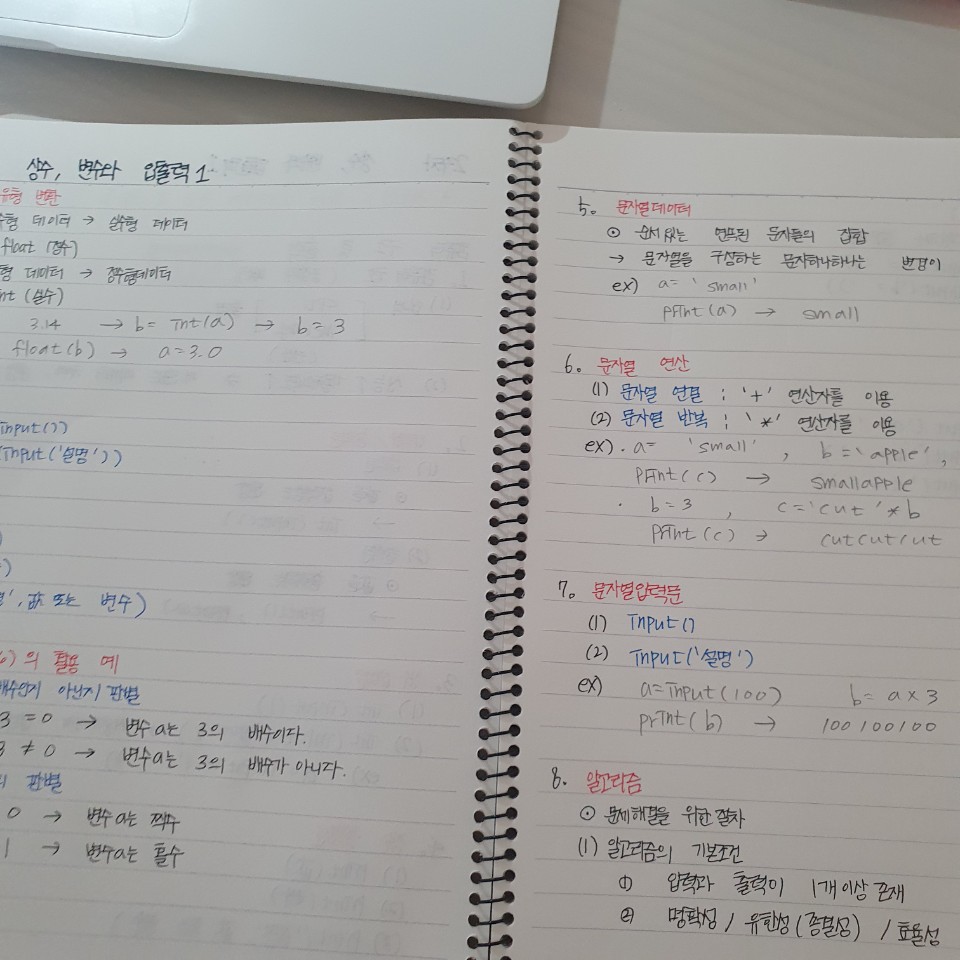 상수, 변수와 입출력 1
유형 변환
수형 데이터 → 실수형 데이터
float (정수)
형 데이터 → 정수형데이터
nt (실수)
3.14 → b = int(a) → b = 3
float(b) → a = 3.0
input())
(input('설명'))
)
)
', 값 또는 변수)
)의 활용 예
배수인지 아닌지 판별
3 = 0 → 변수 a는 3의 배수이다.
3 ≠ 0 → 변수 a는 3의 배수가 아니다.
의 판별
0 → 변수 a는 짝수
1 → 변수 a는 홀수
5. 문자열데이터
⊙ 순서 있는 연속된 문자들의 집합
→ 문자열을 구성하는 문자하나하나는 변경이
ex) a = 'small'
print(a) → small
6. 문자열 연산
(1) 문자열 연결 ; '+' 연산자를 이용
(2) 문자열 반복 ; '*' 연산자를 이용
ex) · a = 'small' , b = 'apple' ,
print(c) → smallapple
· b = 3 , c = 'cut' * b
print(c) → cutcutcut
7. 문자열입력문
(1) input()
(2) input('설명')
ex) a = input(100) b = a × 3
print(b) → 100100100
8. 알고리즘
⊙ 문제해결을 위한 절차
(1) 알고리즘의 기본조건
① 입력과 출력이 1개 이상 존재
② 명확성 / 유한성(종결성) / 효율성